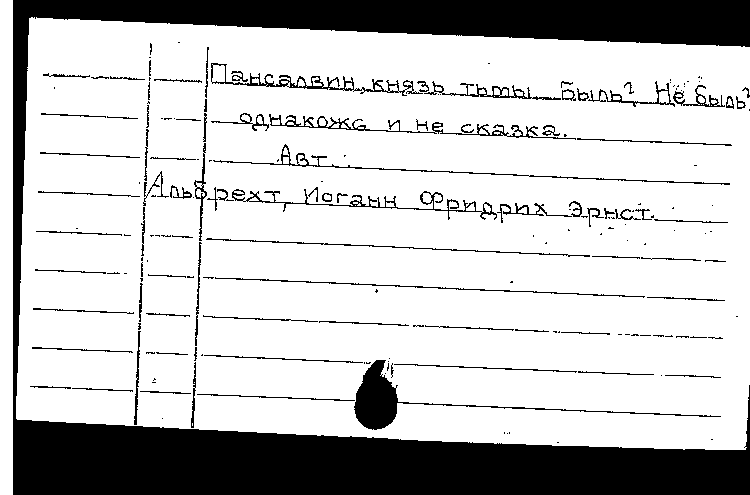 Пансалвин, князь тьмы. Быль? Не быль?
однакожа и не сказка.
Авт.:
Альбрехт, Иоганн Фридрих Эрнст.